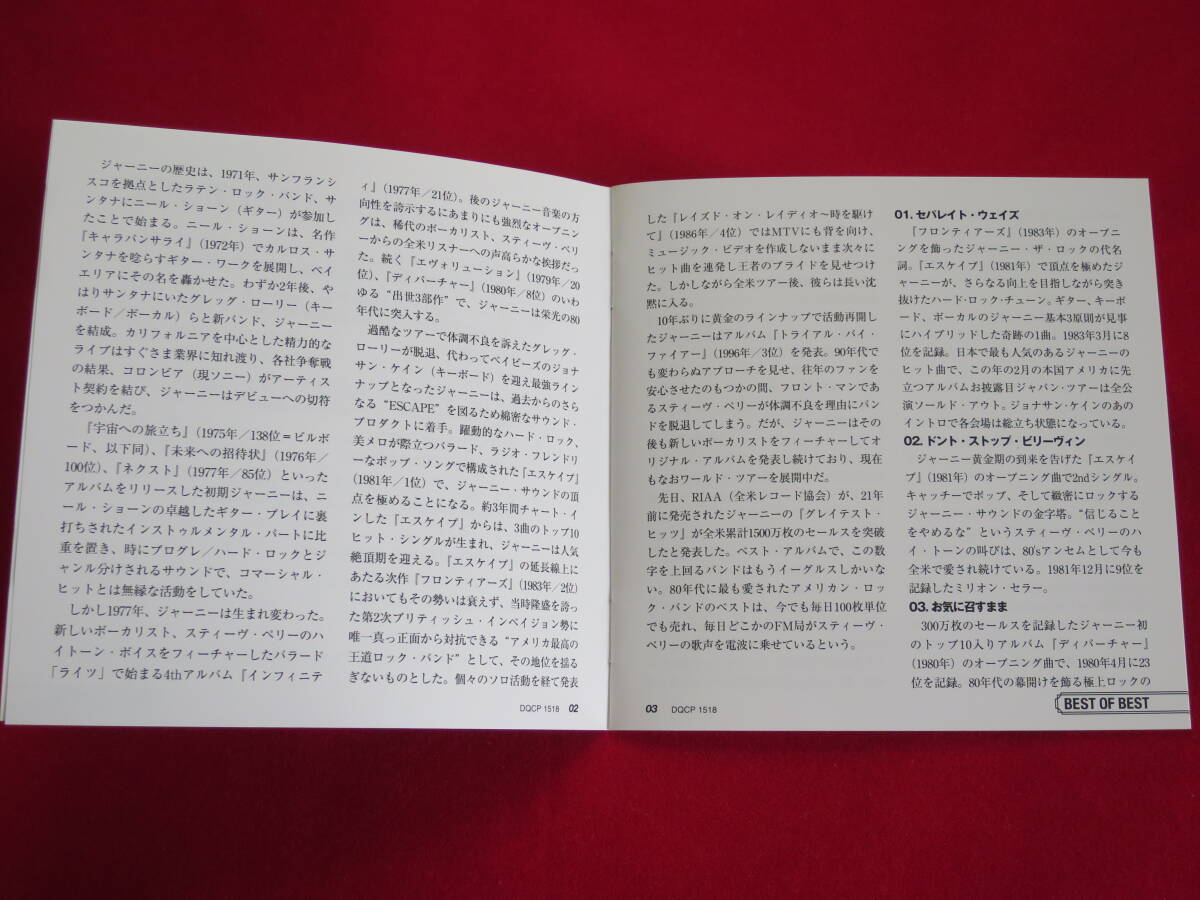 ジャーニーの歴史は、1971年、サンフランシ
スコを拠点としたラテン・ロック・バンド、サ
ンタナにニール・ショーン(ギター)が参加し
たことで始まる。ニール・ショーンは、名作
『キャラバンサライ』(1972年)でカルロス・サ
ンタナを唸らすギター・ワークを展開し、ベイ・
エリアにその名を轟かせた。わずか2年後、や
はりサンタナにいたグレッグ・ローリー(キー
ボード/ボーカル)らと新バンド、ジャーニー
を結成。カリフォルニアを中心とした精力的な
ライブはすぐさま業界に知れ渡り、各社争奪戦
の結果、コロンビア(現ソニー)がアーティス
ト契約を結び、ジャーニーはデビューへの切符
をつかんだ。
『宇宙への旅立ち』(1975年/138位=ビルボ
ード、以下同)、『未来への招待状』(1976年/
100位)、『ネクスト』(1977年/85位)といった
アルバムをリリースした初期ジャーニーは、ニ
ール・ショーンの卓越したギター・プレイに裏
打ちされたインストゥルメンタル・パートに比
重を置き、時にプログレ/ハード・ロックとジ
ャンル分けされるサウンドで、コマーシャル・
ヒットとは無縁な活動をしていた。
しかし1977年、ジャーニーは生まれ変わった。
新しいボーカリスト、スティーヴ・ペリーのハ
イトーン・ボイスをフィーチャーしたバラード
「ライツ」で始まる4thアルバム『インフィニテ
ィ』(1977年/21位)。後のジャーニー音楽の方
向性を誇示するにあまりにも強烈なオープニン
グは、稀代のボーカリスト、スティーヴ・ペリ
ーからの全米リスナーへの声高らかな挨拶だっ
た。続く『エヴォリューション』(1979年/20
位)、『ディパーチャー』(1980年/8位)のいわ
ゆる“出世3部作”で、ジャーニーは栄光の80
年代に突入する。
過酷なツアーで体調不良を訴えたグレッグ・
ローリーが脱退、代わってベイビーズのジョナ
サン・ケイン(キーボード)を迎え最強ライン
ナップとなったジャーニーは、過去からのさら
なる“ESCAPE”を図るため綿密なサウンド・
プロダクトに着手。躍動的なハード・ロック、
美メロが際立つバラード、ラジオ・フレンドリ
ーなポップ・ソングで構成された『エスケイプ』
(1981年/1位)で、ジャーニー・サウンドの頂
点を極めることになる。約3年間チャート・イ
ンした『エスケイプ』からは、3曲のトップ10
ヒット・シングルが生まれ、ジャーニーは人気
絶頂期を迎える。『エスケイプ』の延長線上に
あたる次作『フロンティアーズ』(1983年/2位)
においてもその勢いは衰えず、当時隆盛を誇っ
た第2次ブリティッシュ・インベイジョン勢に
唯一真っ正面から対抗できる“アメリカ最高の
王道ロック・バンド”として、その地位を揺る
ぎないものとした。個々のソロ活動を経て発表
DQCP 1518 02
した『レイズド・オン・レイディオ〜時を駆け
て』(1986年/4位)ではMTVにも背を向け、
ミュージック・ビデオを作成しないまま次々に
ヒット曲を連発し王者のプライドを見せつけ
た。しかしながら全米ツアー後、彼らは長い沈
黙に入る。
10年ぶりに黄金のラインナップで活動再開し
たジャーニーはアルバム『トライアル・バイ・
ファイアー』(1996年/3位)を発表。90年代で
も変わらぬアプローチを見せ、往年のファンを
安心させたのもつかの間、フロント・マンであ
るスティーヴ・ペリーが体調不良を理由にバン
ドを脱退してしまう。だが、ジャーニーはその
後も新しいボーカリストをフィーチャーしてオ
リジナル・アルバムを発表し続けており、現在
もなおワールド・ツアーを展開中だ。
先日、RIAA(全米レコード協会)が、21年
前に発売されたジャーニーの『グレイテスト・
ヒッツ』が全米累計1500万枚のセールスを突破
したと発表した。ベスト・アルバムで、この数
字を上回るバンドはもうイーグルスしかいな
い。80年代に最も愛されたアメリカン・ロッ
ク・バンドのベストは、今でも毎日100枚単位
でも売れ、毎日どこかのFM局がスティーヴ・
ペリーの歌声を電波に乗せているという。
03 DQCP 1518
01. セパレイト・ウェイズ
『フロンティアーズ』(1983年)のオープニ
ングを飾ったジャーニー・ザ・ロックの代名
詞。『エスケイプ』(1981年)で頂点を極めたジ
ャーニーが、さらなる向上を目指しながら突き
抜けたハード・ロック・チューン。ギター、キーボ
ード、ボーカルのジャーニー基本3原則が見事
にハイブリッドした奇跡の1曲。1983年3月に8
位を記録。日本で最も人気のあるジャーニーの
ヒット曲で、この年の2月の本国アメリカに先
立つアルバムお披露目ジャパン・ツアーは全公
演ソールド・アウト。ジョナサン・ケインのあの
イントロで各会場は総立ち状態になっている。
02. ドント・ストップ・ビリーヴィン
ジャーニー黄金期の到来を告げた『エスケイ
プ』(1981年)のオープニング曲で2ndシングル。
キャッチーでポップ、そして緻密にロックする
ジャーニー・サウンドの金字塔。“信じること
をやめるな”というスティーヴ・ペリーのハ
イ・トーンの叫びは、80'sアンセムとして今も
全米で愛され続けている。1981年12月に9位を
記録したミリオン・セラー。
03. お気に召すまま
300万枚のセールスを記録したジャーニー初
のトップ10入りアルバム『ディパーチャー』
(1980年)のオープニング曲で、1980年4月に23
位を記録。80年代の幕開けを飾る極上ロックの
BEST OF BEST